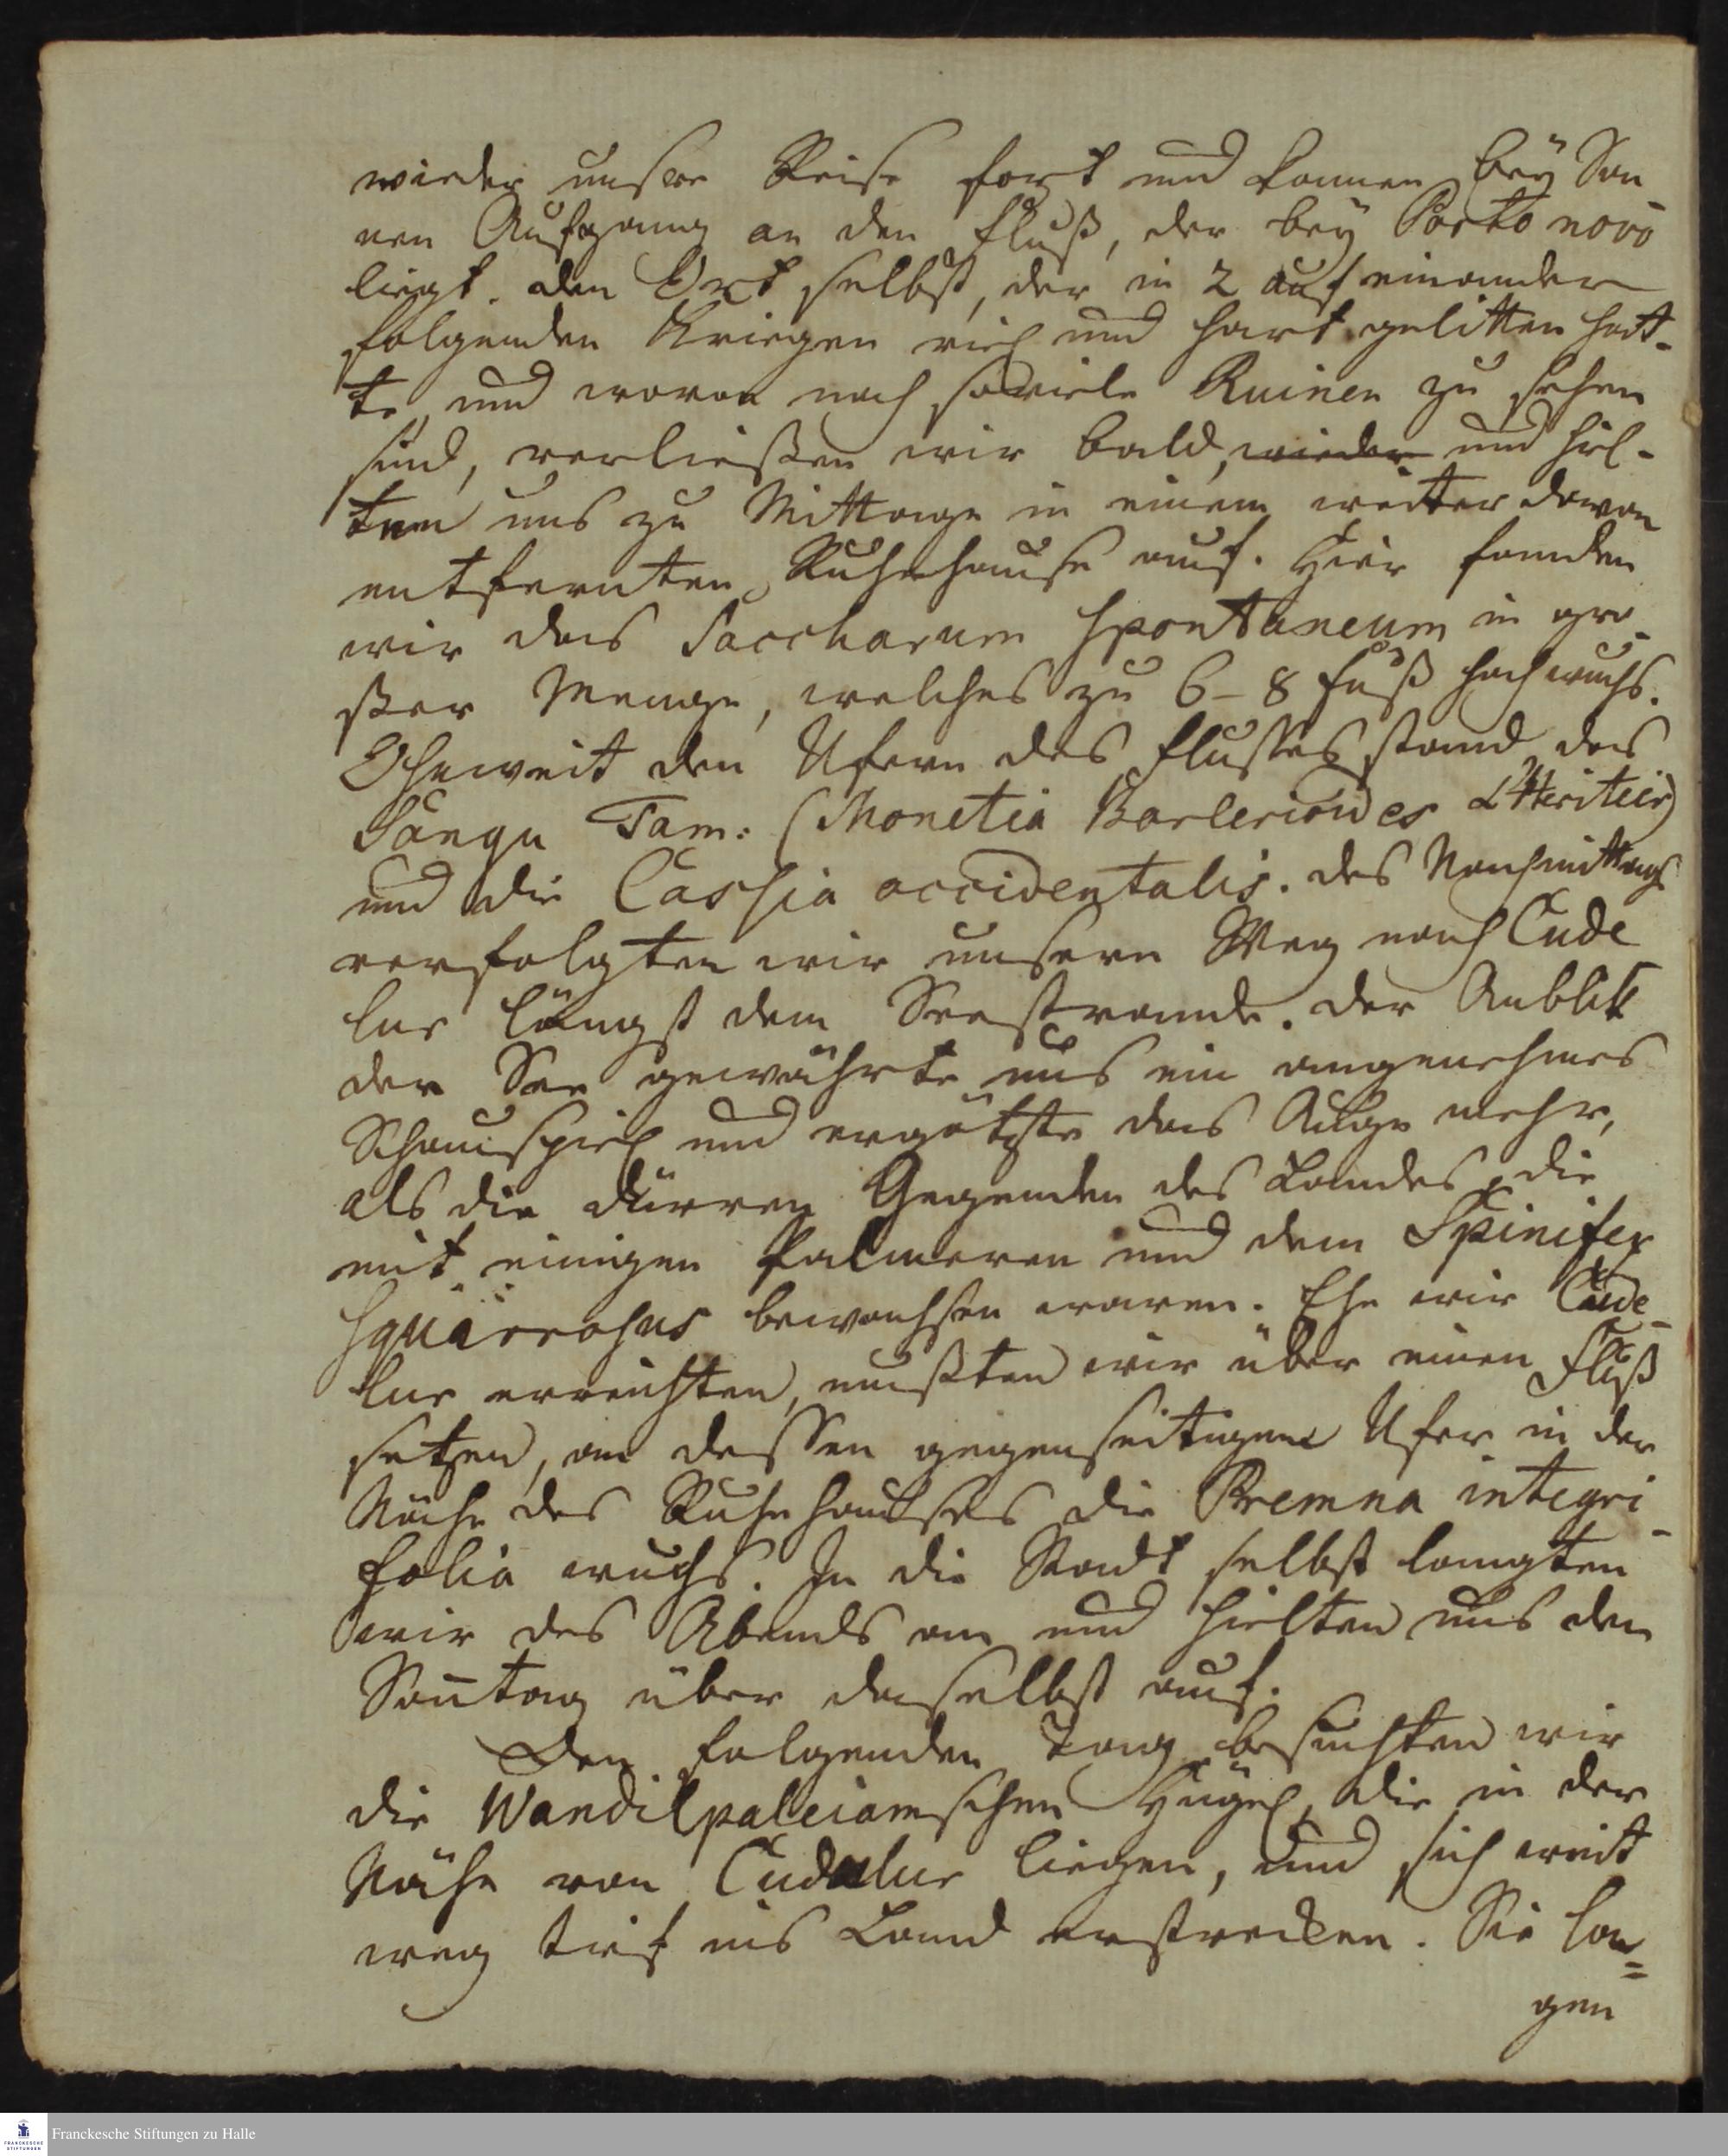 wieder unsere Reise fort und kamen bey Son
nen Aufgang an den Fluß, der bey Porto novo
liegt. den Ort selbst, der in 2 auf einander
folgenden Kriegen viel und hart gelitten hat-
te, und wovon noch soviele Ruinen zu sehen
sind, verließen wir bald, wieder und hiel-
ten uns zu Mittage in einem weiter davon
entfernten Ruhehause auf. Hier fanden
wir das Saccharum spontaneum in gro-
ßer Menge, welches zu 6-8 Fuß hoch wuchs.
Ohnweit den Ufern des Flusses stand das
Sangu Tam: (Monetia Barlerioides L'Heritier)
und die Cassia occidentalis. des Nachmittags
verfolgten wir unsern Weg nach Cude
lur längst dem Seestrande. der Anblik
der See gewährte uns ein angenehmes
Schauspiel und ergötzte das Auge mehr,
als die dürren Gegenden des Landes, die
mit einigen Palmeren und dem Spinifex
squarrosus bewachsen waren. Ehe wir Cude-
lur erreichten, mußten wir über einen Fluß
setzen, an dessen gegenseitigem Ufer in der
Nähe des Ruhehauses die Premna integri-
folia wuchs. In die Stadt selbst langten
wir des Abends an und hielten uns den
Sontag über daselbst auf.
Den folgenden Tag besuchten wir
die Wandilpaleiamschen Hügel, die in der
Nähe von Cudelur liegen, und sich weit
weg tief ins Land erstrecken. Sie lan=
gen
Franckesche Stiftungen zu Halle